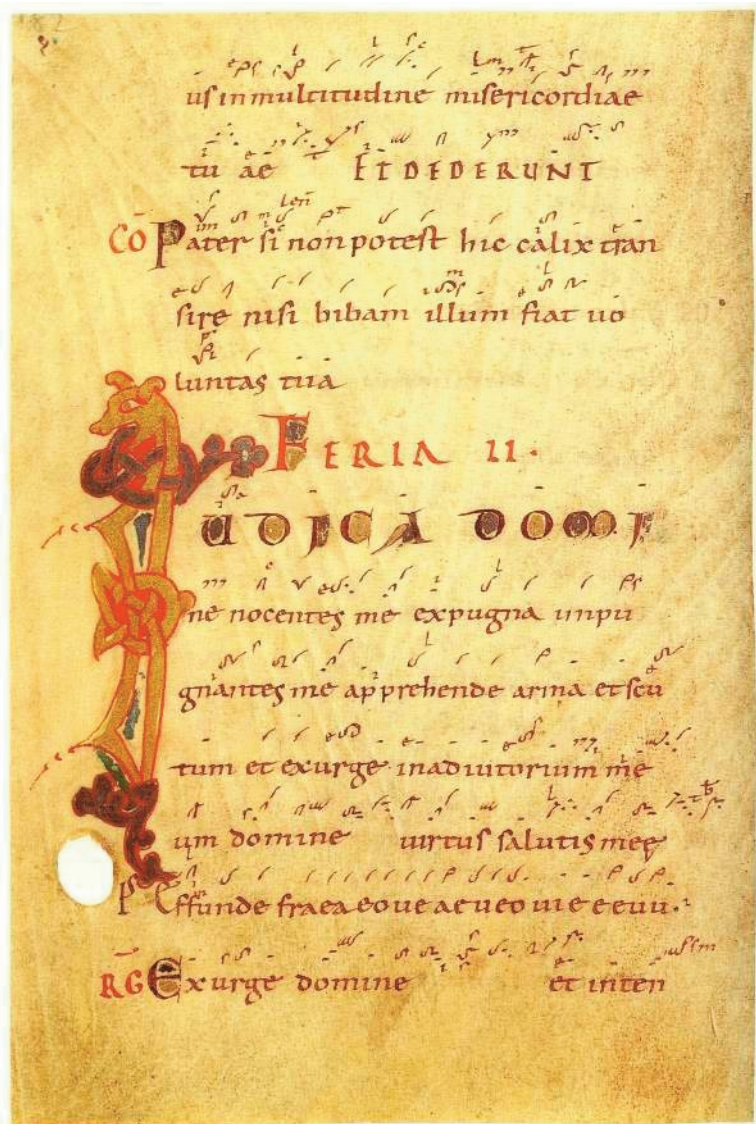 us in multitudine misericordiae
tu ae ET DEDERUNT
CŌ Pater si non potest hic calix tran
sire nisi bibam illum fiat uo
luntas tua
FERIA II.
IUDICA DOMI
ne nocentes me expugna inpu
gnantes me apprehende arma et scu
tum et exurge in adiutorium me
um domine uirtus salutis meę
P Effunde fraea eoue
RG Exurge domine et inten